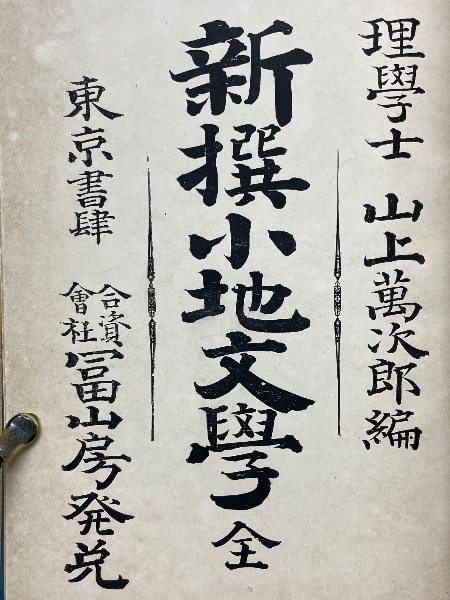 理學士 山上萬次郎編
新撰小地文學 全
東京書肆 合資會社冨山房発兌